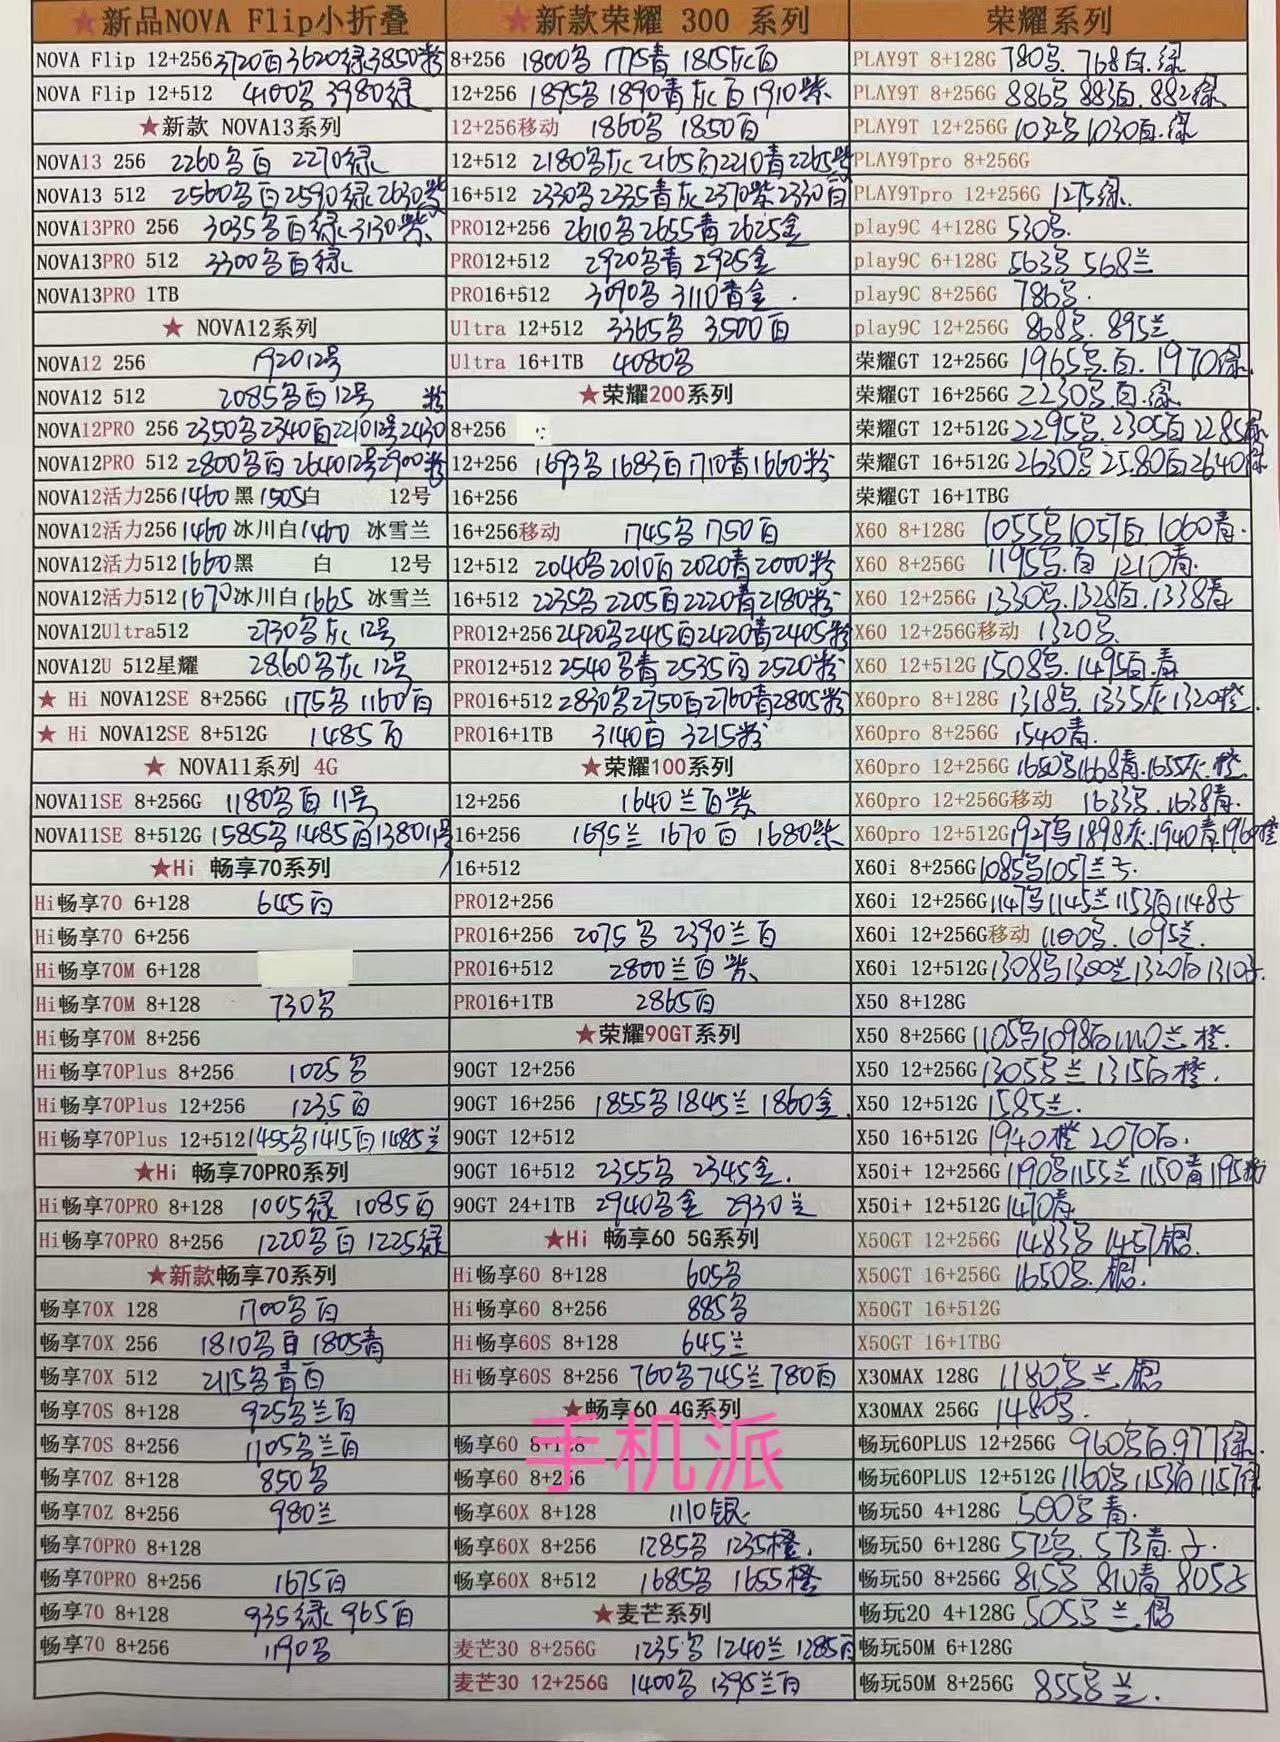 ★新品NOVA Flip小折叠
NOVA Flip 12+256 3720百3620绿3850粉
NOVA Flip 12+512 4100多 3980绿
★新款 NOVA13系列
NOVA13 256 2260多百 2270绿
NOVA13 512 2560多百2590绿2630紫
NOVA13PRO 256 3035多百绿 3130紫
NOVA13PRO 512 3300多百绿
NOVA13PRO 1TB
★ NOVA12系列
NOVA12 256 1920 12号
NOVA12 512 2085多百12号 粉
NOVA12PRO 256 2350多2340百2210 12号2430
NOVA12PRO 512 2800多百2640 12号2900粉
NOVA12活力256 1460黑1505白 12号
NOVA12活力256 1460冰川白1460 冰雪兰
NOVA12活力512 1660黑 白 12号
NOVA12活力512 1670冰川白1665 冰雪兰
NOVA12Ultra512 2730多灰12号
NOVA12U 512星耀 2860多灰12号
★ Hi NOVA12SE 8+256G 1175多1160百
★ Hi NOVA12SE 8+512G 1485百
★ NOVA11系列 4G
NOVA11SE 8+256G 1180多百11号
NOVA11SE 8+512G 1585多1485百1380 11号
★Hi 畅享70系列
Hi畅享70 6+128 645百
Hi畅享70 6+256
Hi畅享70M 6+128
Hi畅享70M 8+128 730多
Hi畅享70M 8+256
Hi畅享70Plus 8+256 1025多
Hi畅享70Plus 12+256 1235百
Hi畅享70Plus 12+512 1455多1415百1485兰
★Hi 畅享70PRO系列
Hi畅享70PRO 8+128 1005绿 1085百
Hi畅享70PRO 8+256 1220多百1225绿
★新款畅享70系列
畅享70X 128 1700多百
畅享70X 256 1810多百1805青
畅享70X 512 2115多青百
畅享70S 8+128 925多兰百
畅享70S 8+256 1105多兰百
畅享70Z 8+128 850多
畅享70Z 8+256 980兰
畅享70PRO 8+128
畅享70PRO 8+256 1675百
畅享70 8+128 935绿 965百
畅享70 8+256 1190多
★新款荣耀 300 系列
8+256 1800多 1775青 1815灰百
12+256 1895多1890青灰百1910紫
12+256移动 1860多 1850百
12+512 2180多灰2165百2210青2265紫
16+512 2330多2335青灰2370紫2330百
PRO12+256 2610多2655青2625金
PRO12+512 2920多青 2925金
PRO16+512 3090多 3110青金.
Ultra 12+512 3365多 3500百
Ultra 16+1TB 4080多
★荣耀200系列
8+256
12+256 1693多1683百1710青1660粉
16+256
16+256移动 1745多1750百
12+512 2040多2010百2020青2000粉
16+512 2235多2205百2220青2180粉
PRO12+256 2420多2415百2420青2405粉
PRO12+512 2540多青2535百2520粉
PRO16+512 2830多2750百2760青2805粉
PRO16+1TB 3140百 3215粉
★荣耀100系列
12+256 1640兰百紫
16+256 1695兰 1670百 1680紫
16+512
PRO12+256
PRO16+256 2075多 2390兰百
PRO16+512 2800兰百紫
PRO16+1TB 2865百
★荣耀90GT系列
90GT 12+256
90GT 16+256 1855多1845兰1860金.
90GT 12+512
90GT 16+512 2355多 2345金.
90GT 24+1TB 2940多金 2930兰
★Hi 畅享60 5G系列
Hi畅享60 8+128 605多
Hi畅享60 8+256 885多
Hi畅享60S 8+128 645兰
Hi畅享60S 8+256 760多745兰780百
★畅享60 4G系列
畅享60 8+128
畅享60 8+256
畅享60X 8+128 1110银
畅享60X 8+256 1285多 1235橙.
畅享60X 8+512 1685多 1655橙
★麦芒系列
麦芒30 8+256G 1235多 1240兰 1285百
麦芒30 12+256G 1400多1395兰百
荣耀系列
PLAY9T 8+128G 780多. 768百.绿
PLAY9T 8+256G 886多 883百.882绿
PLAY9T 12+256G 1032多1030百.绿
PLAY9Tpro 8+256G
PLAY9Tpro 12+256G 1275绿.
play9C 4+128G 530多.
play9C 6+128G 563多 568兰
play9C 8+256G 786多.
play9C 12+256G 868多.895兰
荣耀GT 12+256G 1965多.百.1970绿
荣耀GT 16+256G 2230多.百.绿
荣耀GT 12+512G 2295多.2305百2285绿
荣耀GT 16+512G 2630多2580百2640绿
荣耀GT 16+1TBG
X60 8+128G 1055多1057百 1060青.
X60 8+256G 1195多.百 1210青.
X60 12+256G 1330多.1328百.1338青
X60 12+256G移动 1320多.
X60 12+512G 1508多.1495百.青
X60pro 8+128G 1318多.1335灰1320橙.
X60pro 8+256G 1540青.
X60pro 12+256G 1650多1668青.1655灰.橙
X60pro 12+256G移动 1633多.1638青.
X60pro 12+512G 1927多1898灰.1940青.1960橙
X60i 8+256G 1085多1057兰子.
X60i 12+256G 1147多1145兰1153百1148子
X60i 12+256G移动 1100多.1095兰.
X60i 12+512G 1308多1300兰1320百1310子.
X50 8+128G
X50 8+256G 1105多1098百1110兰 橙.
X50 12+256G 1305多兰1315百橙.
X50 12+512G 1585兰.
X50 16+512G 1940橙 2070百.
X50i+ 12+256G 1190多1155兰1150青1195粉
X50i+ 12+512G 1470青.
X50GT 12+256G 1483多 1457银.
X50GT 16+256G 1650多.银.
X50GT 16+512G
X50GT 16+1TBG
X30MAX 128G 1180多兰.银
X30MAX 256G 1480多.
畅玩60PLUS 12+256G 960多百.977绿.
畅玩60PLUS 12+512G 1160多1153百1157绿
畅玩50 4+128G 500多青.
畅玩50 6+128G 572多.573青.子.
畅玩50 8+256G 815多 810青 805子
畅玩20 4+128G 505多兰.银
畅玩50M 6+128G
畅玩50M 8+256G 855多兰.
手机派